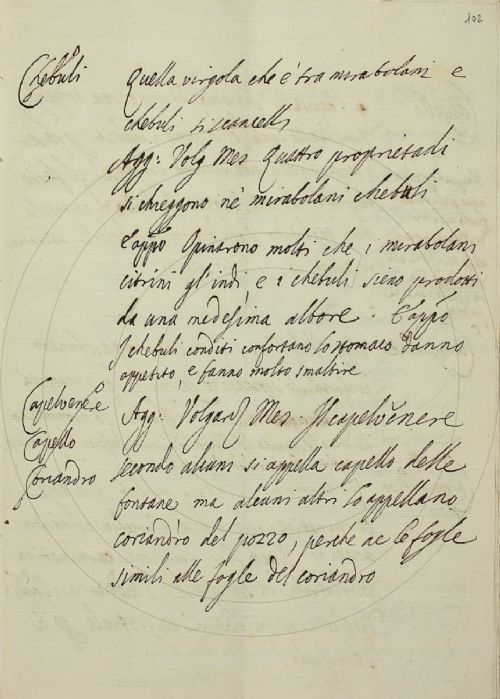 102
Chebuli Quella virgola che è tra mirabolani e
chebuli si scancelli
Agg: Volg Mes Quattro proprietadi
si chieggono ne mirabolani chebuli
E appo Opinarono molti che i mirabolani
citrini gl'indi e i chebuli sieno prodotti
da una medesima albore. E appo
I chebuli conditi confortano lo stomaco danno
appetito, e fanno molto smaltire
Capelvenere Agg: Volgar Mes. Il capelvenere
Capello
Coriandro secondo alcuni si appella capello delle
fontane ma alcuni altri lo appellano
coriandro del pozzo, perche ae le fogle
simili alle fogle del coriandro